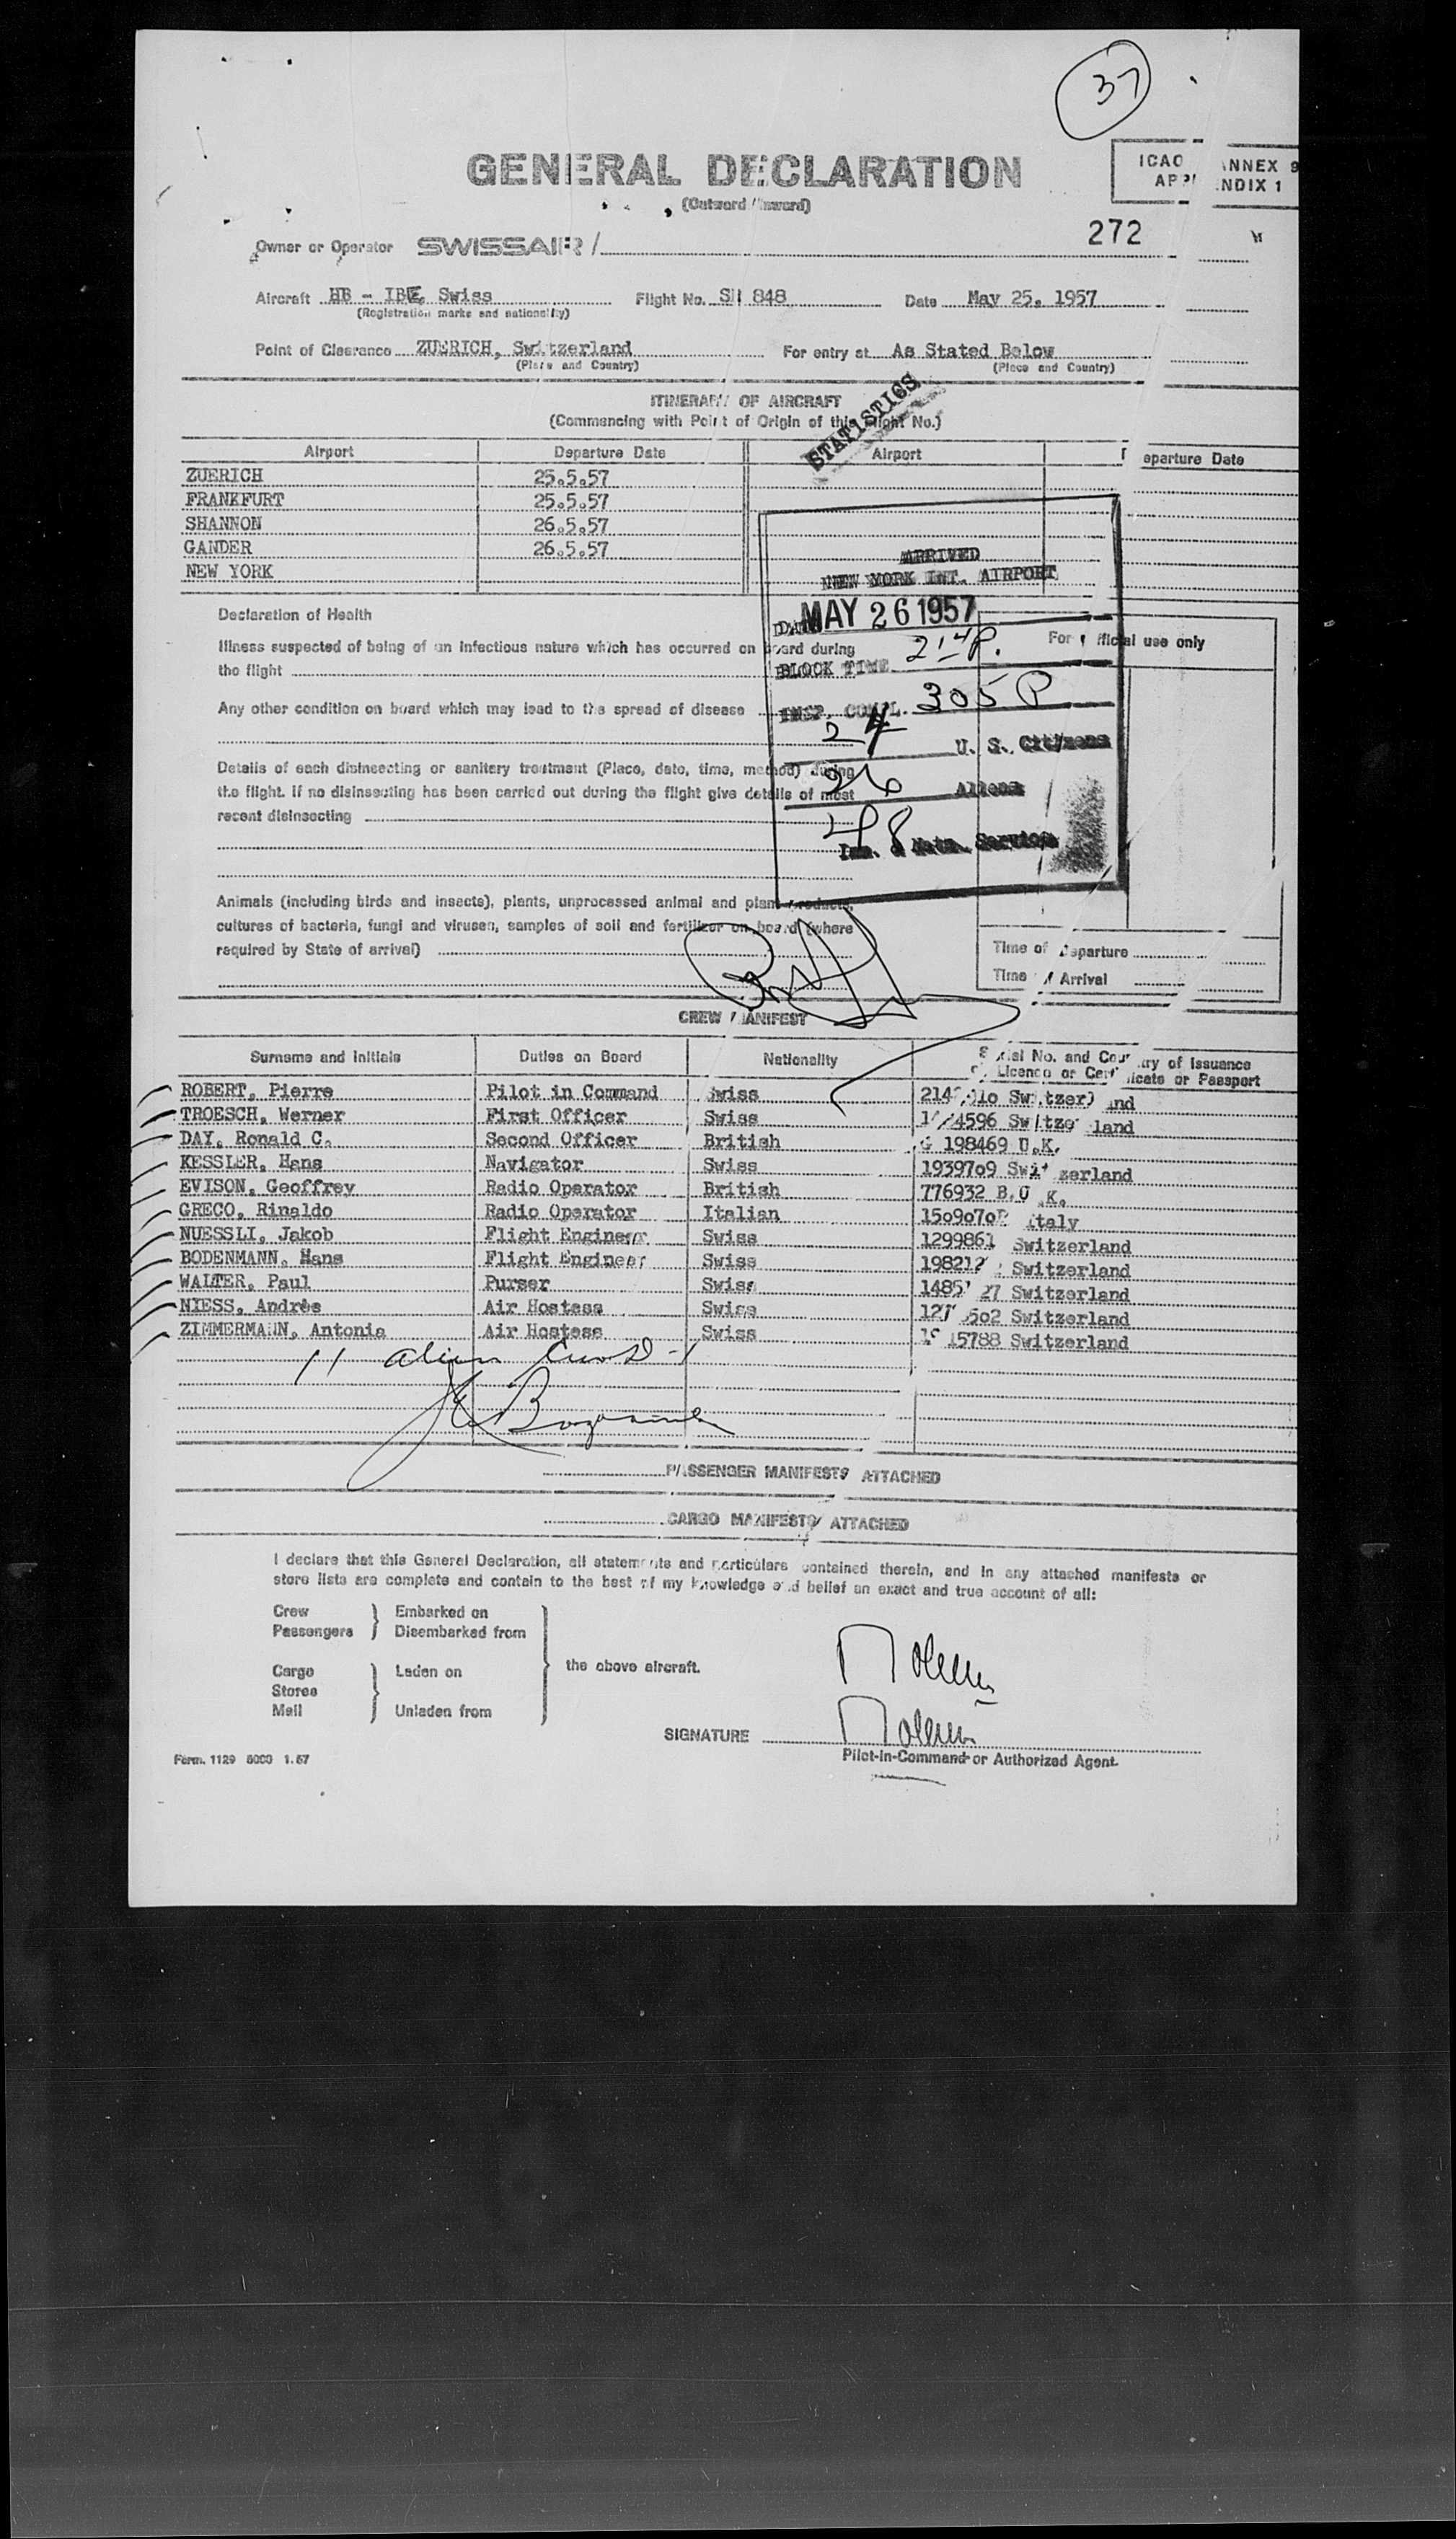 37
GENERAL DECLARATION
(Outward / Inward)
ICAO ANNEX 9
APPENDIX 1
272
Owner or Operator SWISSAIR /
Aircraft HB - IBE, Swiss Flight No. SR 848 Date May 25. 1957
(Registration marks and nationality)
Point of Clearance ZUERICH, Switzerland For entry at As Stated Below
(Place and Country) (Place and Country)
STATISTICS
ITINERARY OF AIRCRAFT
(Commencing with Point of Origin of this Flight No.)
Airport Departure Date Airport Departure Date
ZUERICH 25.5.57
FRANKFURT 25.5.57
SHANNON 26.5.57
GANDER 26.5.57
NEW YORK
ARRIVED
NEW YORK INT. AIRPORT
DATE MAY 26 1957
BLOCK TIME 214 P.
INSP. COMPL. 305 P
24 U. S. Citizens
26 Aliens
48
Imm. & Natn. Service
Declaration of Health
Illness suspected of being of an infectious nature which has occurred on board during
the flight
Any other condition on board which may lead to the spread of disease
Details of each disinsecting or sanitary treatment (Place, date, time, method) during
the flight. If no disinsecting has been carried out during the flight give details of most
recent disinsecting
Animals (including birds and insects), plants, unprocessed animal and plant products,
cultures of bacteria, fungi and viruses, samples of soil and fertilizer on board (where
required by State of arrival)
For official use only
Time of Departure
Time of Arrival
CREW MANIFEST
Surname and Initials Duties on Board Nationality Serial No. and Country of Issuance
of Licence or Certificate or Passport
ROBERT, Pierre Pilot in Command Swiss Switzerland
TROESCH, Werner First Officer Swiss Switzerland
DAY, Ronald C. Second Officer British 198469 U.K.
KESSLER, Hans Navigator Swiss 1939709 Switzerland
EVISON, Geoffrey Radio Operator British 776932 B.U.K.
GRECO, Rinaldo Radio Operator Italian Italy
NUESSLI, Jakob Flight Engineer Swiss 1299861 Switzerland
BODENMANN, Hans Flight Engineer Swiss Switzerland
WALTER, Paul Purser Swiss Switzerland
NIESS, Andrée Air Hostess Swiss Switzerland
ZIMMERMANN, Antonia Air Hostess Swiss Switzerland
11 alien crew
PASSENGER MANIFESTS ATTACHED
CARGO MANIFESTS ATTACHED
I declare that this General Declaration, all statements and particulars contained therein, and in any attached manifests or
store lists are complete and contain to the best of my knowledge and belief an exact and true account of all:
Crew Embarked on
Passengers Disembarked from
the above aircraft.
Cargo Laden on
Stores
Mail Unladen from
SIGNATURE
Pilot-in-Command or Authorized Agent.
Form. 1129 5000 1.57